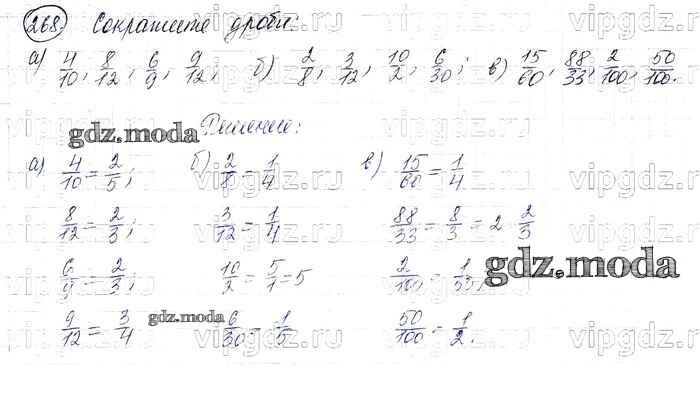 268. Сократите дроби:
а) 4/10, 8/12, 6/9, 9/12; б) 2/8, 3/12, 10/2, 6/30; в) 15/60, 88/33, 2/100, 50/100.
Решение:
gdz.moda
а) 4/10 = 2/5; б) 2/8 = 1/4 в) 15/60 = 1/4
8/12 = 2/3; 3/12 = 1/4 88/33 = 8/3 = 2 2/3
gdz.moda
6/9 = 2/3; 10/2 = 5/1 = 5 2/100 = 1/50,
gdz.moda
9/12 = 3/4 6/30 = 1/5 50/100 = 1/2.
vipgdz.ru